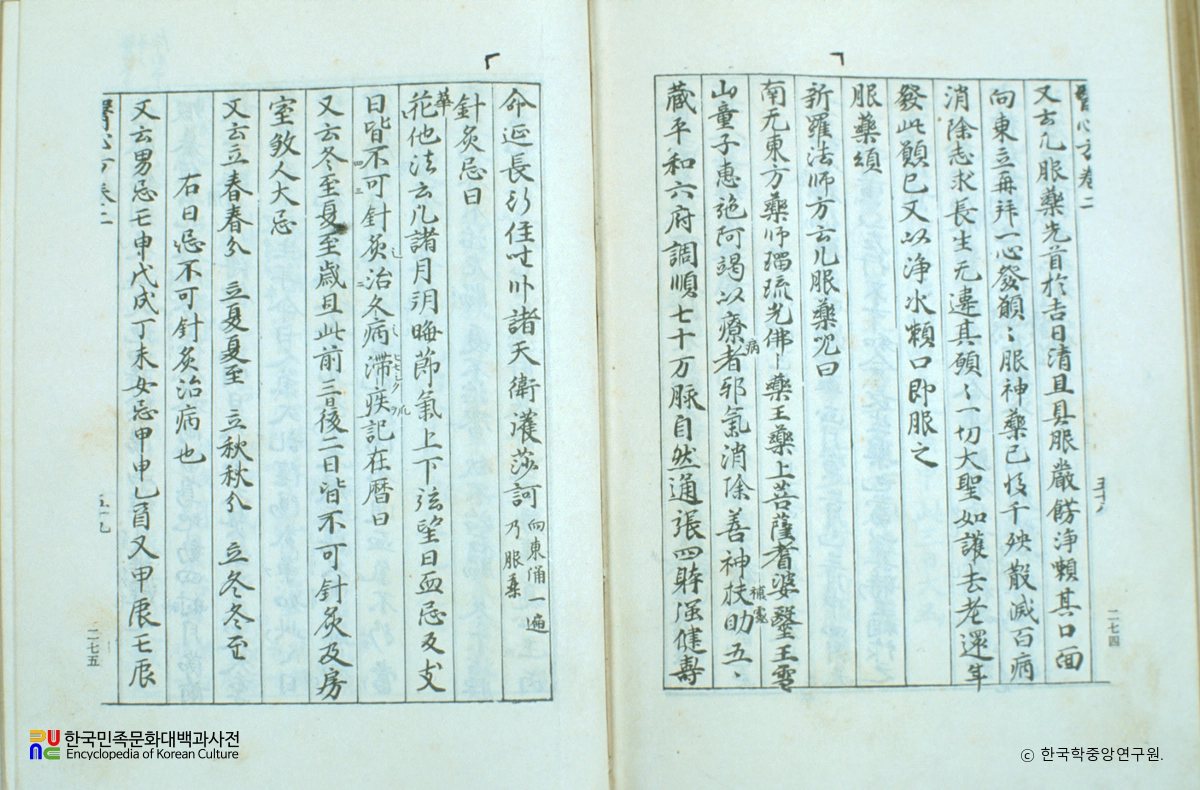 醫心方卷二
又云凡服藥先首於吉日清旦具服嚴餝淨頼其口面
向東立再拜一心發願〻服神藥已後千殃散滅百病
消除志求長生无違其願〻一切大聖如護去老還年
發此願已又以淨水頼口即服之
服藥頌
新羅法師方云凡服藥呪曰
南无東方藥師瑠琉光佛〻藥王藥上菩薩耆婆醫王雪
山童子惠施阿竭以療病者邪氣消除善神扶助五〻
補處
藏平和六府調順七十万脉自然通張四躰強健壽
五十八
二七四
命延長行住坐臥諸天衛護莎訶 向東誦一遍乃服藥
針灸忌日
華
花他法云凡諸月朔晦節氣上下弦望日血忌及支
日皆不可針灸治冬病滞疾記在暦日
又云冬至夏至歳旦此前三日後二日皆不可針灸及房
室敓人大忌
又云立春春分 立夏夏至 立秋秋分 立冬冬至
右日忌不可針灸治病也
又云男忌壬申戊戌丁未女忌甲申乙酉又甲辰壬辰
醫心方卷二
五十九
二七五
한국민족문화대백과사전
Encyclopedia of Korean Culture
ⓒ 한국학중앙연구원.